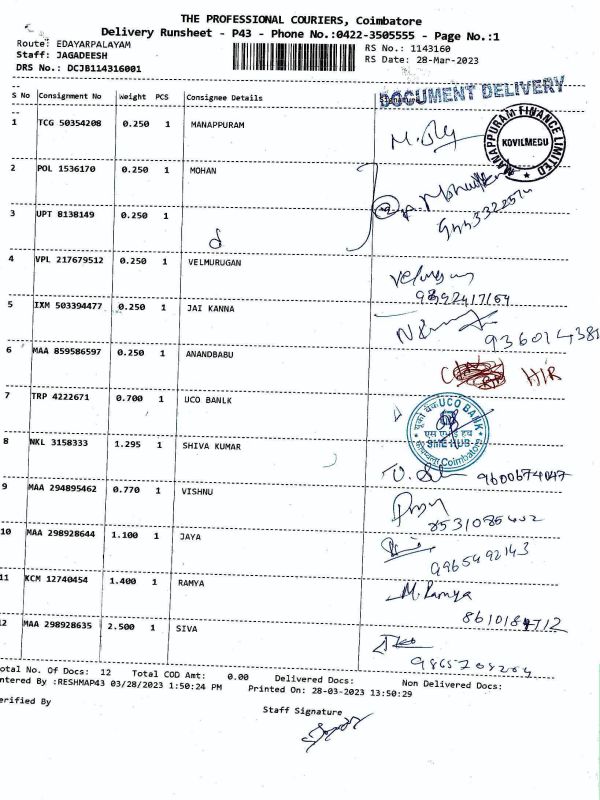 THE PROFESSIONAL COURIERS, Coimbatore
Delivery Runsheet - P43 - Phone No.:0422-3505555 - Page No.:1
Route: EDAYARPALAYAM RS No.: 1143160
Staff: JAGADEESH RS Date: 28-Mar-2023
DRS No.: DCJB114316001
DOCUMENT DELIVERY
S No Consignment No Weight PCS Consignee Details Signature
1 TCG 50354208 0.250 1 MANAPPURAM
MANAPPURAM FINANCE LIMITED
KOVILMEDU
2 POL 1536170 0.250 1 MOHAN
3 UPT 8138149 0.250 1
4 VPL 217679512 0.250 1 VELMURUGAN
5 IXM 503394477 0.250 1 JAI KANNA
936014381
6 MAA 859586597 0.250 1 ANANDBABU
HIR
7 TRP 4222671 0.700 1 UCO BANLK
यूको बैंक UCO BANK
Coimbatore
8 NKL 3158333 1.295 1 SHIVA KUMAR
9600674047
9 MAA 294895462 0.770 1 VISHNU
10 MAA 298928644 1.100 1 JAYA
9965492143
11 KCM 12740454 1.400 1 RAMYA M. Ramya
12 MAA 298928635 2.500 1 SIVA
Total No. Of Docs: 12 Total COD Amt: 0.00 Delivered Docs: Non Delivered Docs:
Entered By :RESHMAP43 03/28/2023 1:50:24 PM Printed On: 28-03-2023 13:50:29
Verified By Staff Signature